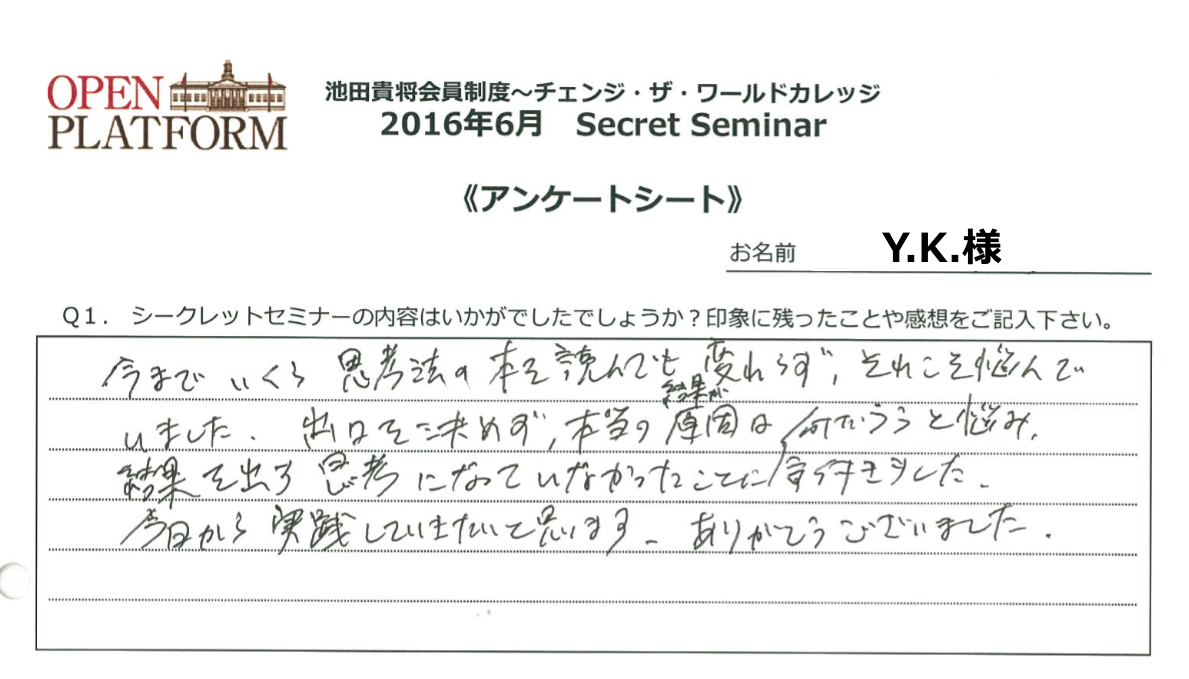 OPEN
PLATFORM
池田貴将会員制度～チェンジ・ザ・ワールドカレッジ
2016年6月 Secret Seminar
《アンケートシート》
お名前 Y.K.様
Q1. シークレットセミナーの内容はいかがでしたでしょうか？印象に残ったことや感想をご記入下さい。
今までいくら思考法の本を読んでも変れらず、それこそ悩んで
いました。出口を決めず、本当の原因は何だろうと悩み、
結果が
結果を出る思考になっていなかったことに気づきました。
今日から実践していきたいと思います。ありがとうございました。